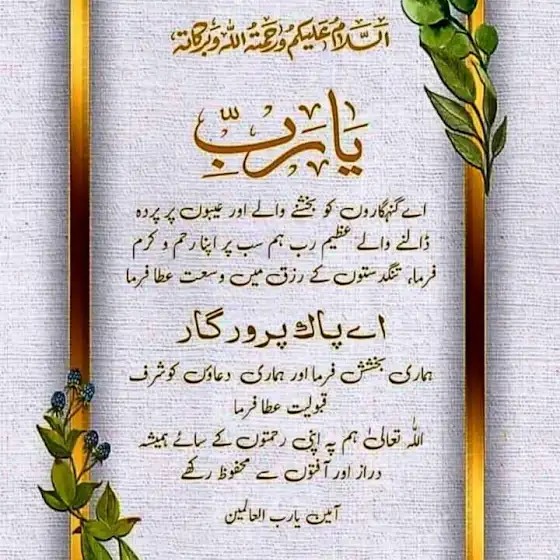 السلام علیکم ورحمتہ اللہ وبرکاتہ
یا ربِّ
اے گنہگاروں کو بخشنے والے اور عیبوں پر پردہ
ڈالنے والے عظیم رب ہم سب پر اپنا رحم و کرم
فرما، تنگدستوں کے رزق میں وسعت عطا فرما
اے پاک پرورگار
ہماری بخشش فرما اور ہماری دعاؤں کو شرف
قبولیت عطا فرما
اللہ تعالیٰ ہم پہ اپنی رحمتوں کے سائے ہمیشہ
دراز اور آفتوں سے محفوظ رکھے
آمین یارب العالمین